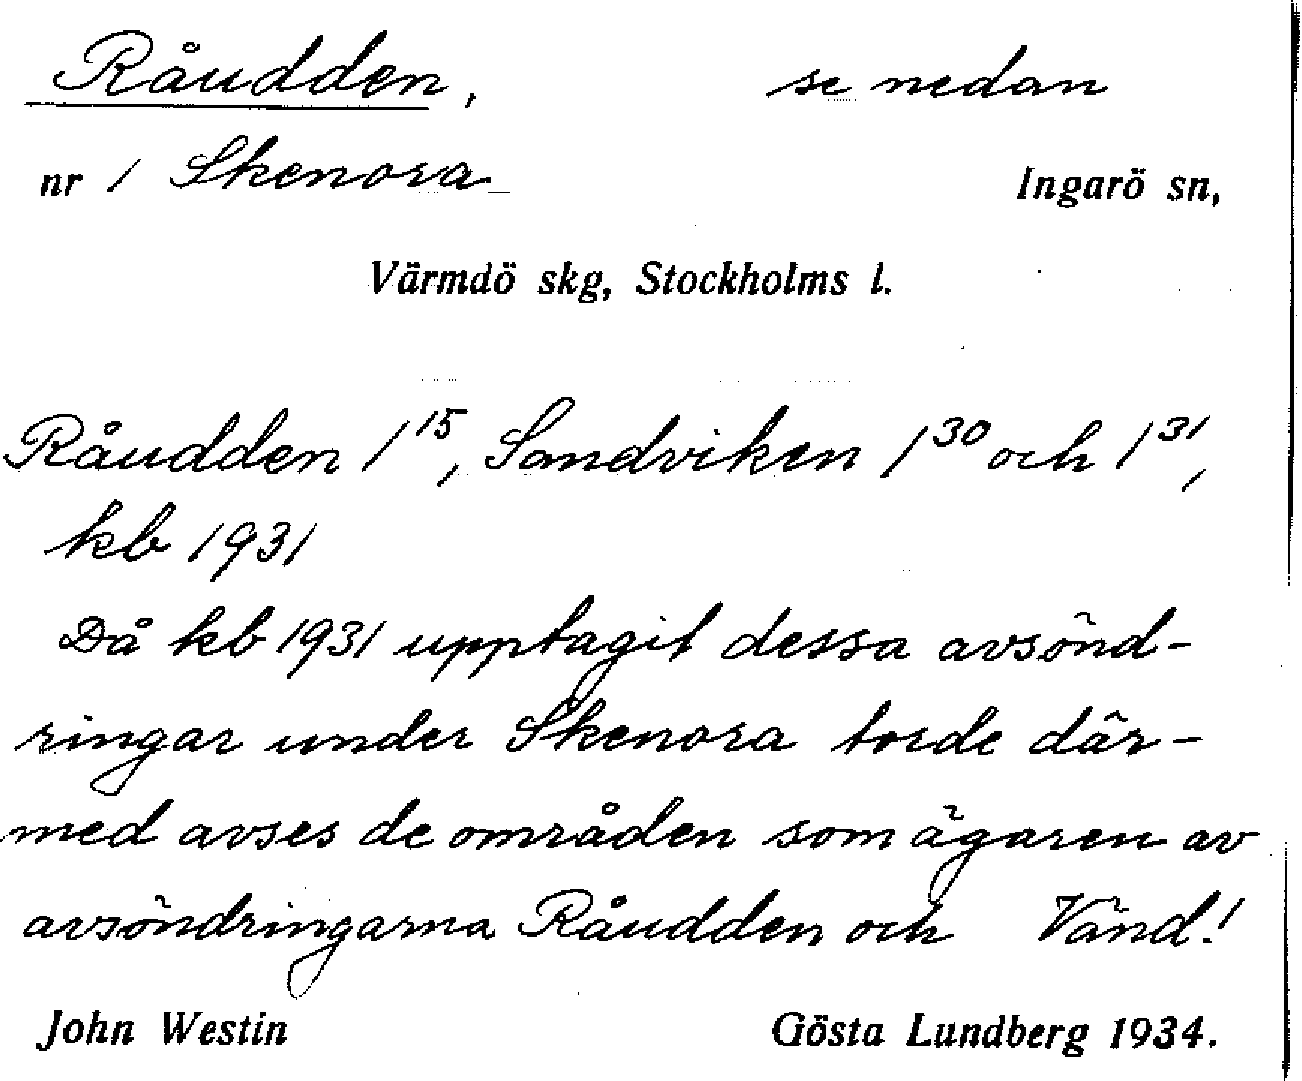 Råudden, se nedan
nr 1 Skenora Ingarö sn,
Värmdö skg, Stockholms l.
Råudden 1¹⁵, Sandviken 1³⁰ och 1³¹,
kb 1931
Då kb 1931 upptagit dessa avsönd-
ringar under Skenora torde där-
med avses de områden som ägaren av
avsöndringarna Råudden och Vänd!
John Westin Gösta Lundberg 1934.